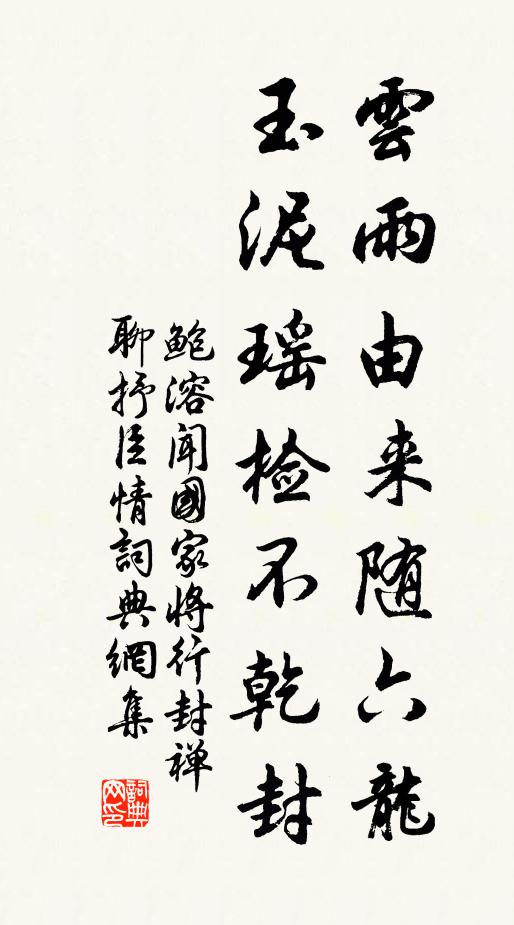 雲雨由来随六龍
玉泥瑶检不乾封
鲍溶闻國家将行封禅
聊抒臣情詞典網集
詞典网印